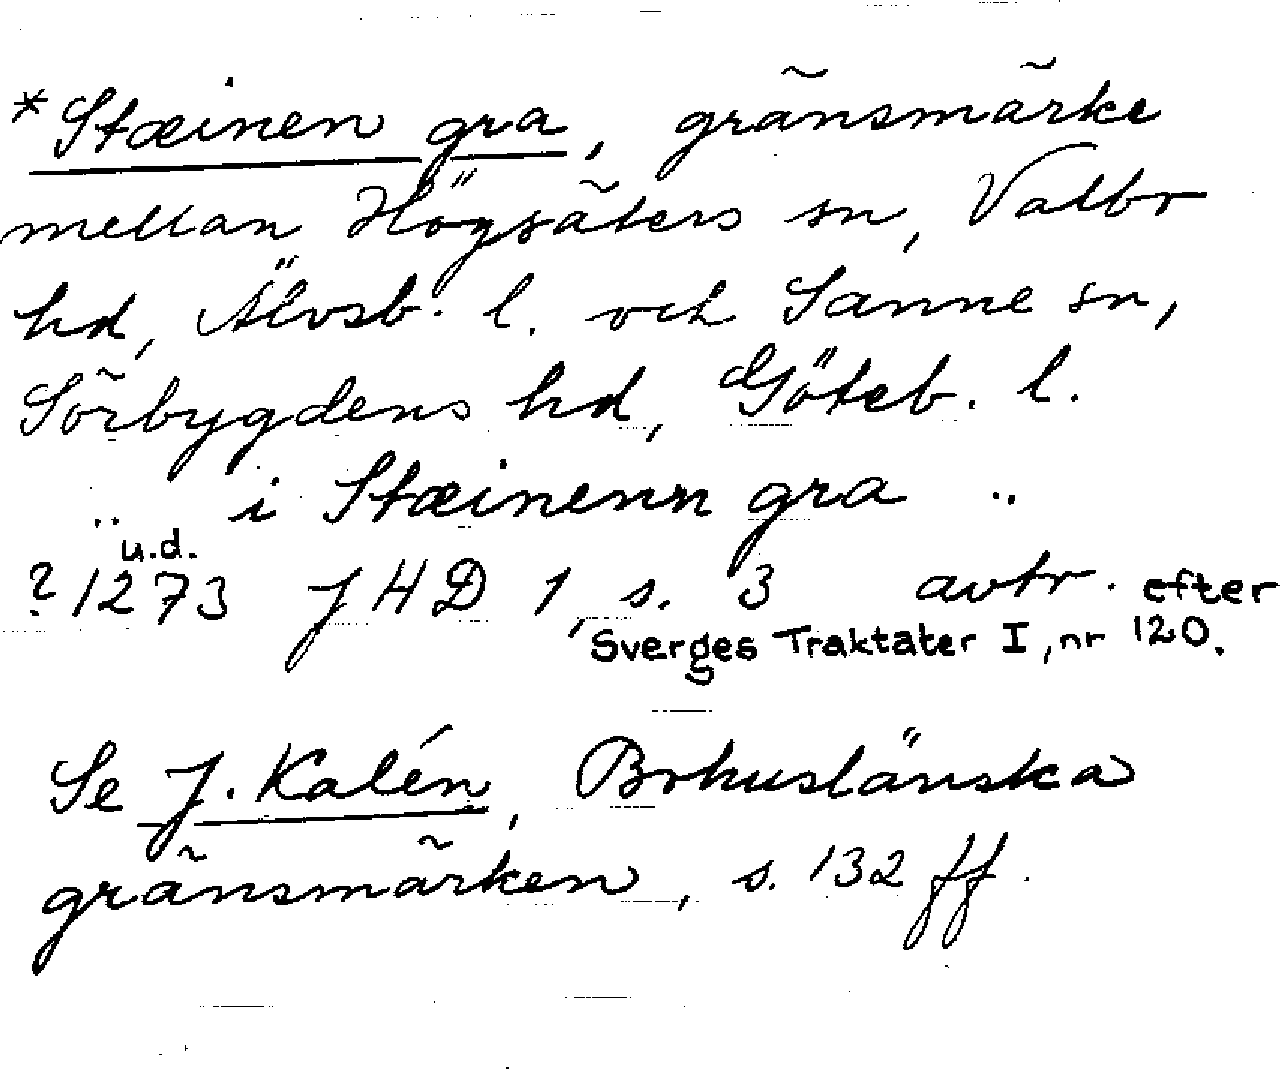 *Stæinen gra, gränsmärke
mellan Högsäters sn, Valbo
hd, Älvsb. l. och Sanne sn,
Sörbygdens hd, Göteb. l.
.. i Stæinenn gra ..
u.d.
? 1273 JHD 1, s. 3 avtr. efter
Sverges Traktater I, nr 120.
Se J. Kalén, Bohuslänska
gränsmärken, s. 132 ff.